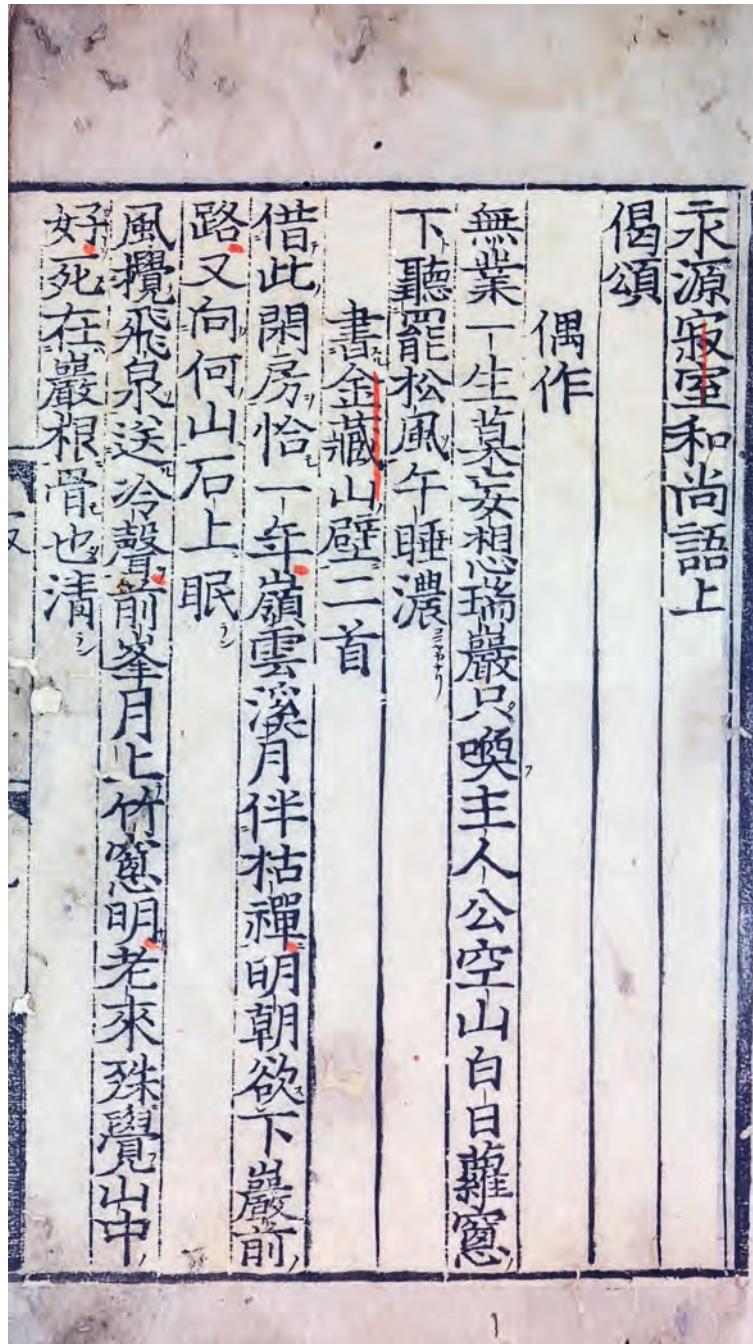 永源寂室和尚語上
偈頌
偶作
無業一生莫妄想瑞巖只喚主人公空山白日蘿窻
下聽罷松風午睡濃
書金藏山壁二首
借此閑房恰一年嶺雲溪月伴枯禪明朝欲下巖前
路又向何山石上眠
風攪飛泉送冷聲前峯月上竹窻明老來殊覺山中
好死在巖根骨也清